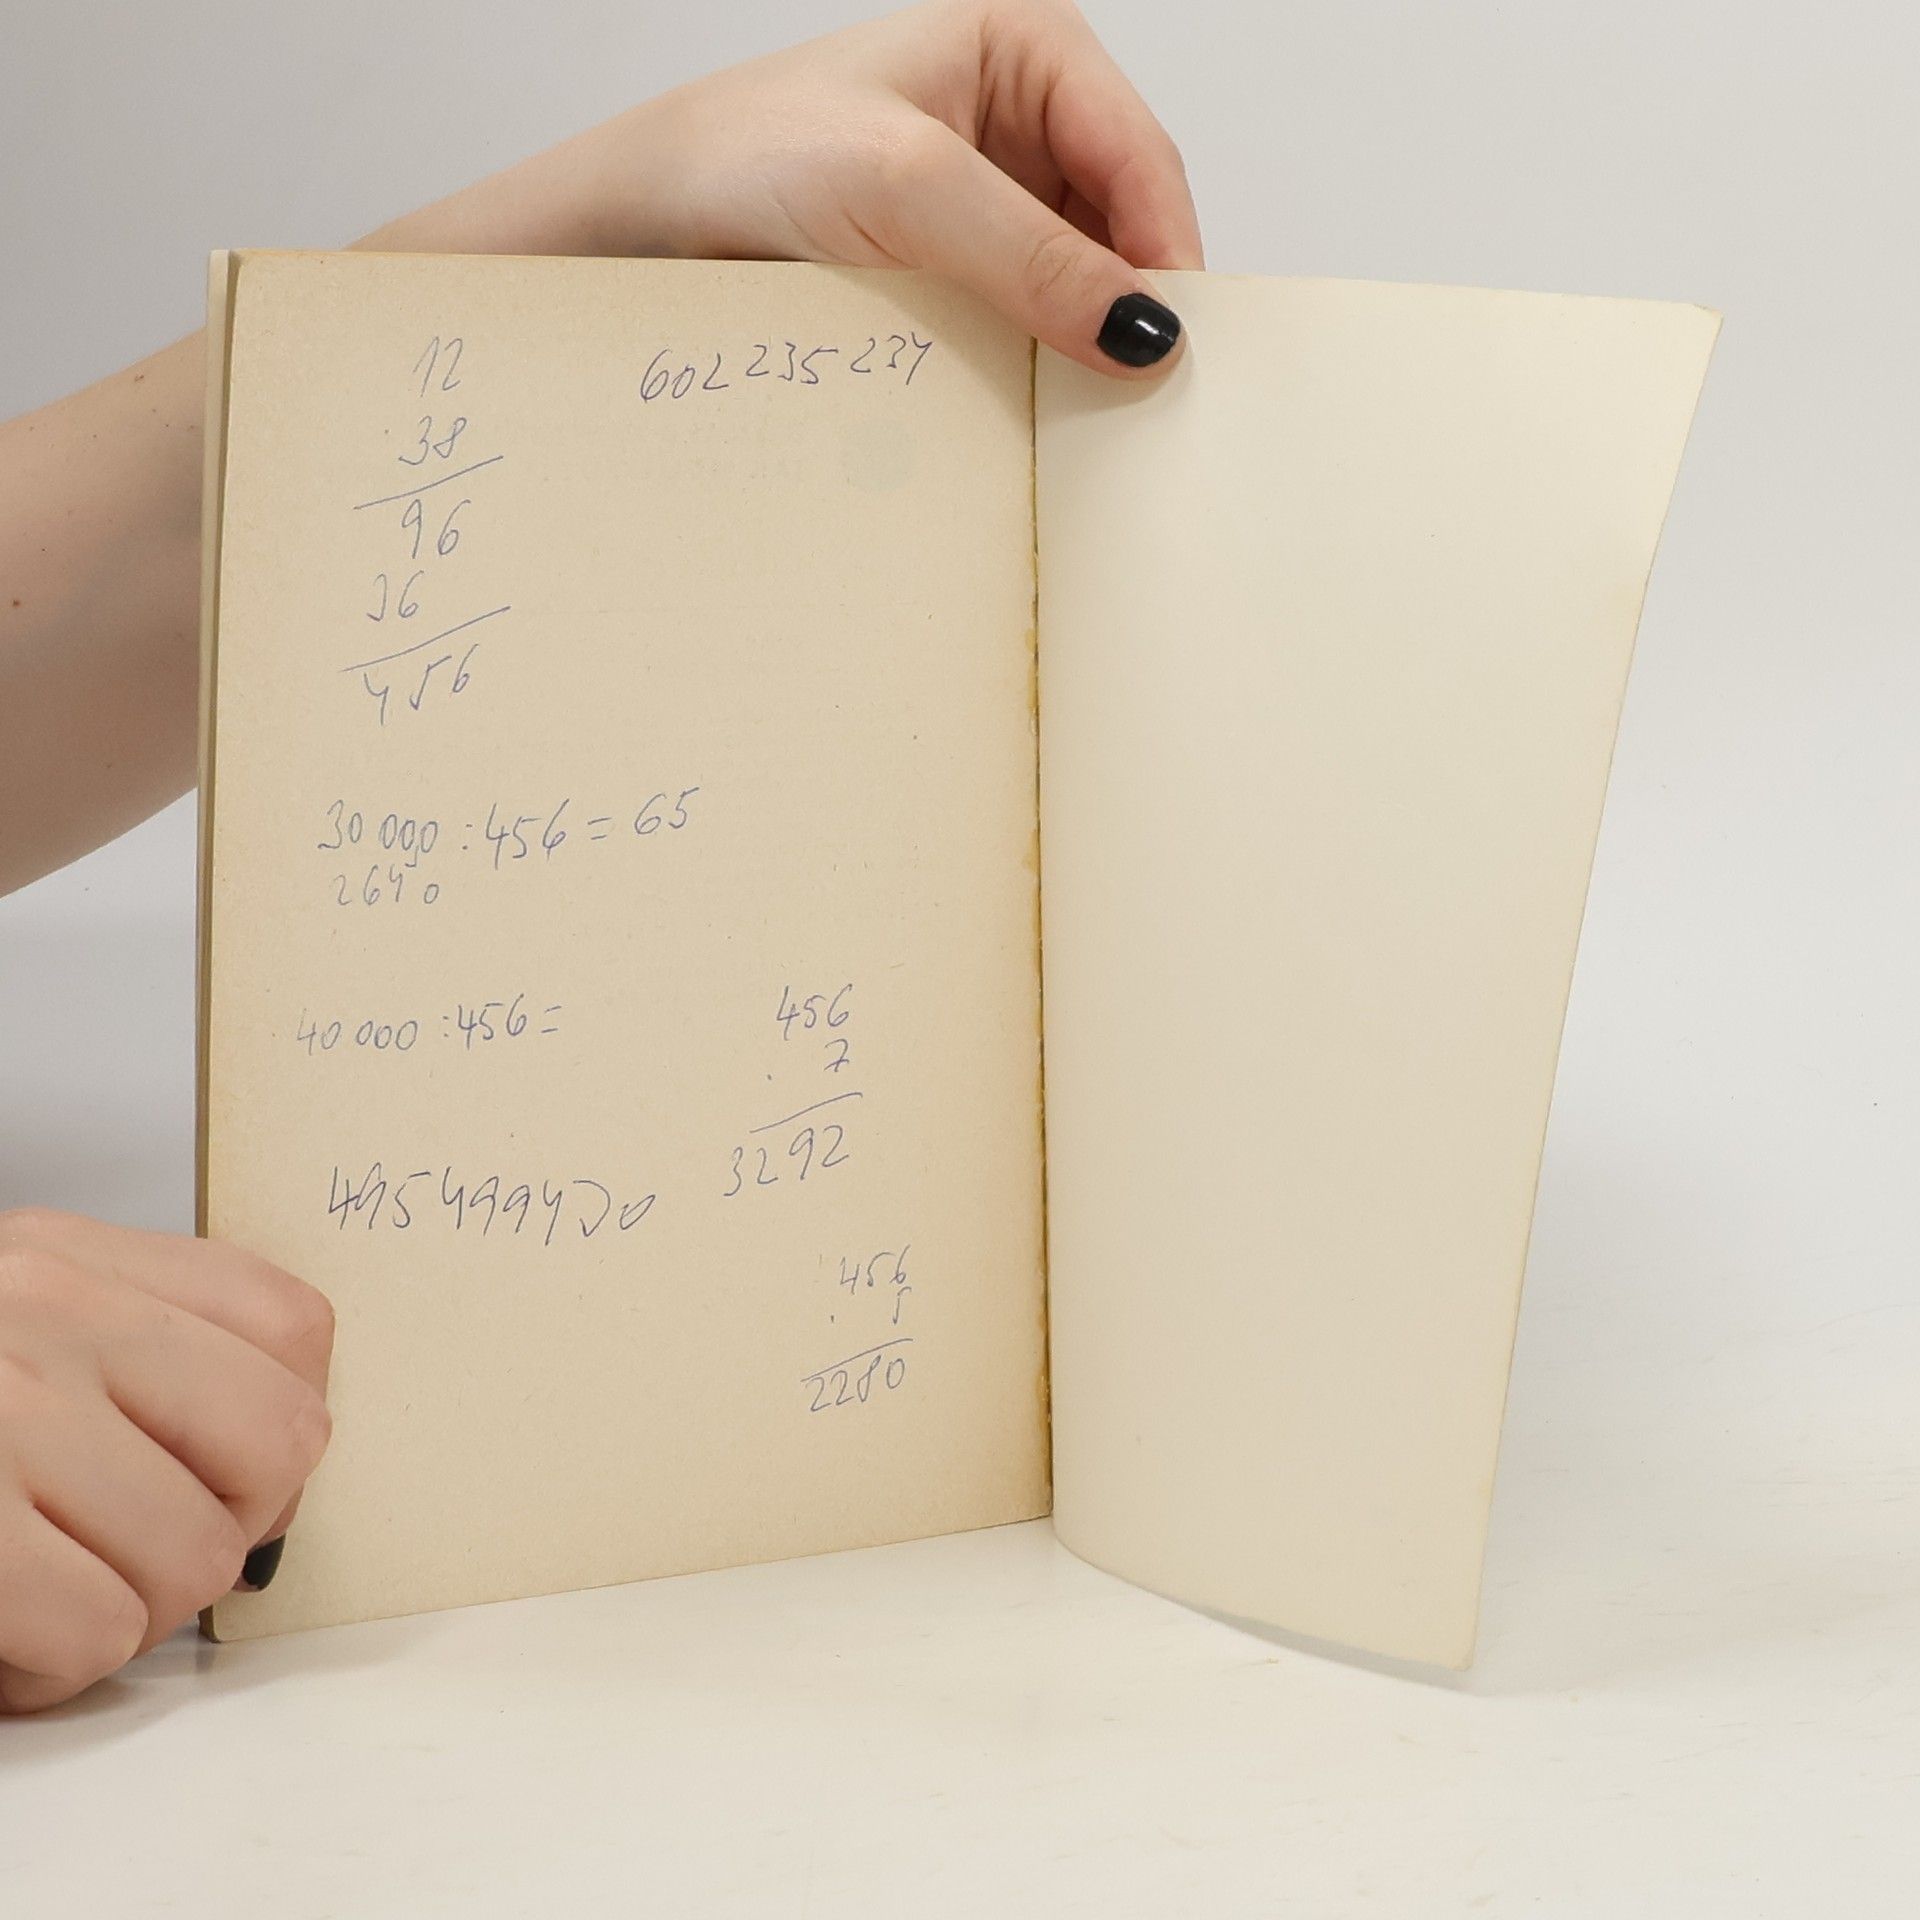 12
602 235 234
. 38
96
36
456
30 000 : 456 = 65
2640
40 000 : 456 =
456
. 7
3292
495499430
456
. 5
2280